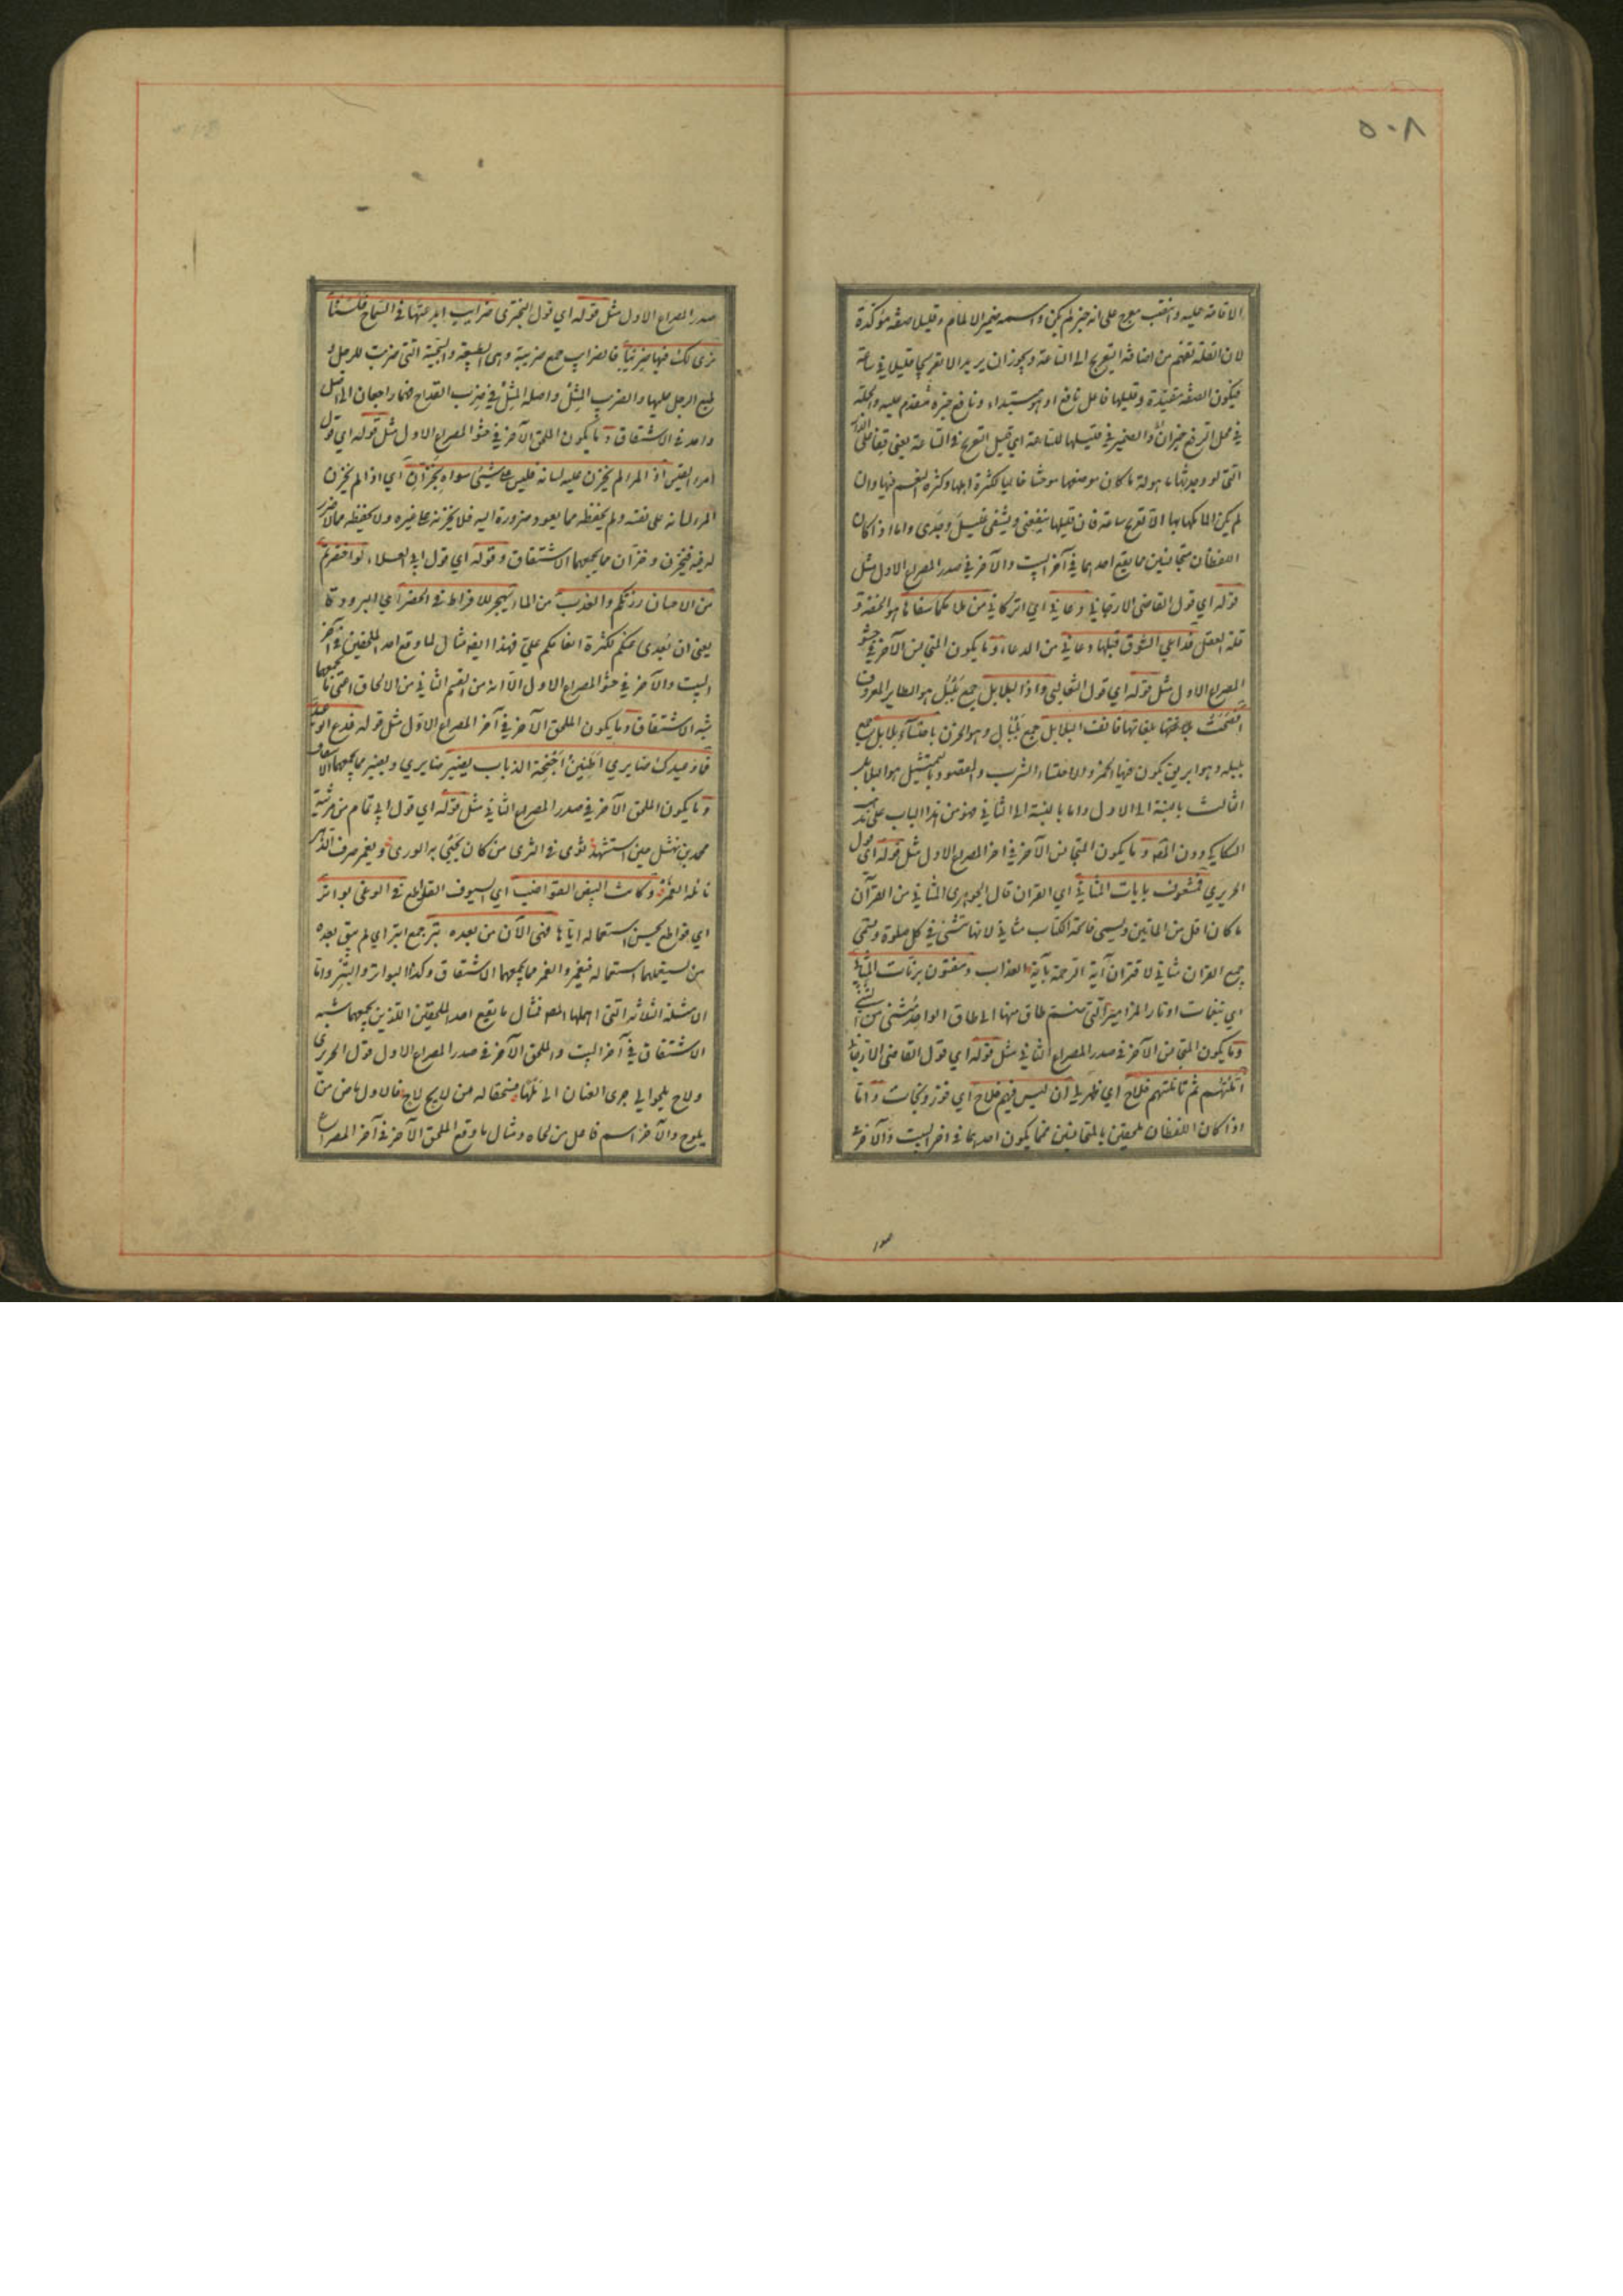 ٥٠٨
الاقامة عليه وانتصب معرج على انه خبر لم يكن واسمه ضمير الالمام وقليلا صفة مؤكدة
لان القلة تفهم من اضافة التعريج الى الساعة ويجوز ان يريد الا تعريجا قليلا في ساعة
فيكون الصفة مقيدة وقليلها فاعل نافع او هو مبتداء ونافع خبره مقدم عليه والجملة
في محل الرفع خبر ان والضمير في قليلها للساعة اي قليل التعريج في الساعة يعني قفا على الدار
التي لو وجدتها ماهولة ما كان موضعها موحشا خاليا لكثرة اهلها وكثرة النعم فيها وان
لم يكن المامكما بها الا تعريج ساعة فان قليلها ينفعني ويشفي غليل وجدي واما اذا كان
اللفظان متجانسين فما يقع احدهما في آخر البيت والآخر في صدر المصراع الاول مثل
قوله اي قول القاضي الارجاني دعاني اي اتركاني من ملامكما سفاها هو الخفة و
قلة العقل فداعي الشوق قبلكما دعاني من الدعاء وما يكون المتجانس الآخر في حشو
المصراع الاول مثل قوله اي قول الثعالبي واذا البلابل جمع بلبل هو الطاير المعروف
افصحت بلغاتها فانف البلابل جمع بلبال وهو الحزن باحتساء بلابل جمع
بلبلة وهو ابريق يكون فيها الخمر والاحتساء الشرب والمقصود بالتمثيل هو البلابل
الثالث بالنسبة الى الاول واما بالنسبة الى الثاني فهو من هذا الباب على مذهب
السكاكي دون المصـ وما يكون المتجانس الآخر في اخر المصراع الاول مثل قوله اي قول
الحريري فمشغوف بايات المثاني اي القران قال الجوهري المثاني من القرآن
ما كان اقل من المايتين ويسمى فاتحة الكتاب مثاني لانها تثنى في كل صلوة ويسمى
جميع القران مثاني لاقتران آية الرحمة بآية العذاب ومفتون برنات المثاني
اي بنغمات اوتار المزامير التي ضم طاق منها الى طاق الواحد مثنى من
وما يكون المتجانس الآخر في صدر المصراع الثاني مثل قوله اي قول القاضي الارجاني
املتهم ثم تاملتهم فلاح اي ظهر لي ان ليس فيهم فلاح اي فوز ونجات واما
اذا كان اللفظان ملحقين بالمتجانسين فما يكون احدهما في اخر البيت والآخر في
صدر
صدر المصراع الاول مثل قوله اي قول البحتري ضرايب ابدعتها في السماح فلسنا
نرى لك فيها ضريبا فالضرايب جمع ضريبة وهي الطبيعة والسجية التي ضربت للرجل و
طبع الرجل عليها والضريب المثل واصله المثل في ضرب القداح فهما راجعان الى اصل
واحد في الاشتقاق وما يكون الملحق الآخر في حشو المصراع الاول مثل قوله اي قول
امرء القيس اذا المرء لم يخزن عليه لسانه فليس على شيئ سواه بخزان اي اذا لم يخزن
المرء لسانه على نفسه ولم يحفظه مما يعود ضرره اليه فلا يخزنه على غيره ولا يحفظه مما لا ضرر
له فيه فيخزن وخزان مما يجمعهما الاشتقاق وقوله اي قول ابي العلاء لو اختصرتم
من الاحسان زرتكم والعذب من الماء يهجر للافراط في الخصر اي البرودة
يعني ان بعدي عنكم لكثرة انعامكم علي فهذا ايضا مثال لما وقع احد الملحقين في آخر
البيت والآخر في حشو المصراع الاول الا انه من القسم الثاني من الالحاق اعني ما يجمعهما
شبه الاشتقاق وما يكون الملحق الآخر في آخر المصراع الاول مثل قوله فدع الوعيد
فما وعيدك ضايري اطنين اجنحة الذباب يضير ضايري ويضير مما يجمعهما الاشتقاق
وما يكون الملحق الآخر في صدر المصراع الثاني مثل قوله اي قول ابي تمام من مرثية
محمد بن نهشل حين استشهد ثوى في الثرى من كان يحيى به الورى ويغمر صرف الدهر
نائله الغمر وكانت البيض القواضب اي السيوف القواطع في الوغى بواتر
اي قواطع لحسن استعماله اياها فهي الآن من بعده بتر جمع ابتر اي لم يبق بعده
من يستعملها استعماله فيغمر والغمر مما يجمعهما الاشتقاق وكذا البواتر والبتر واما
الامثلة الثلثة التي اهملها المصـ فمثال ما يقع احد الملحقين اللذين يجمعهما شبه
الاشتقاق في آخر البيت والملحق الآخر في صدر المصراع الاول قول الحريري
ولاح يلحى على جري العنان الى ملهى فسحقا له من لايح لاح فالاول ماض من
يلوح والآخر اسم فاعل من لحاه ومثال ما وقع الملحق الآخر في آخر المصراع